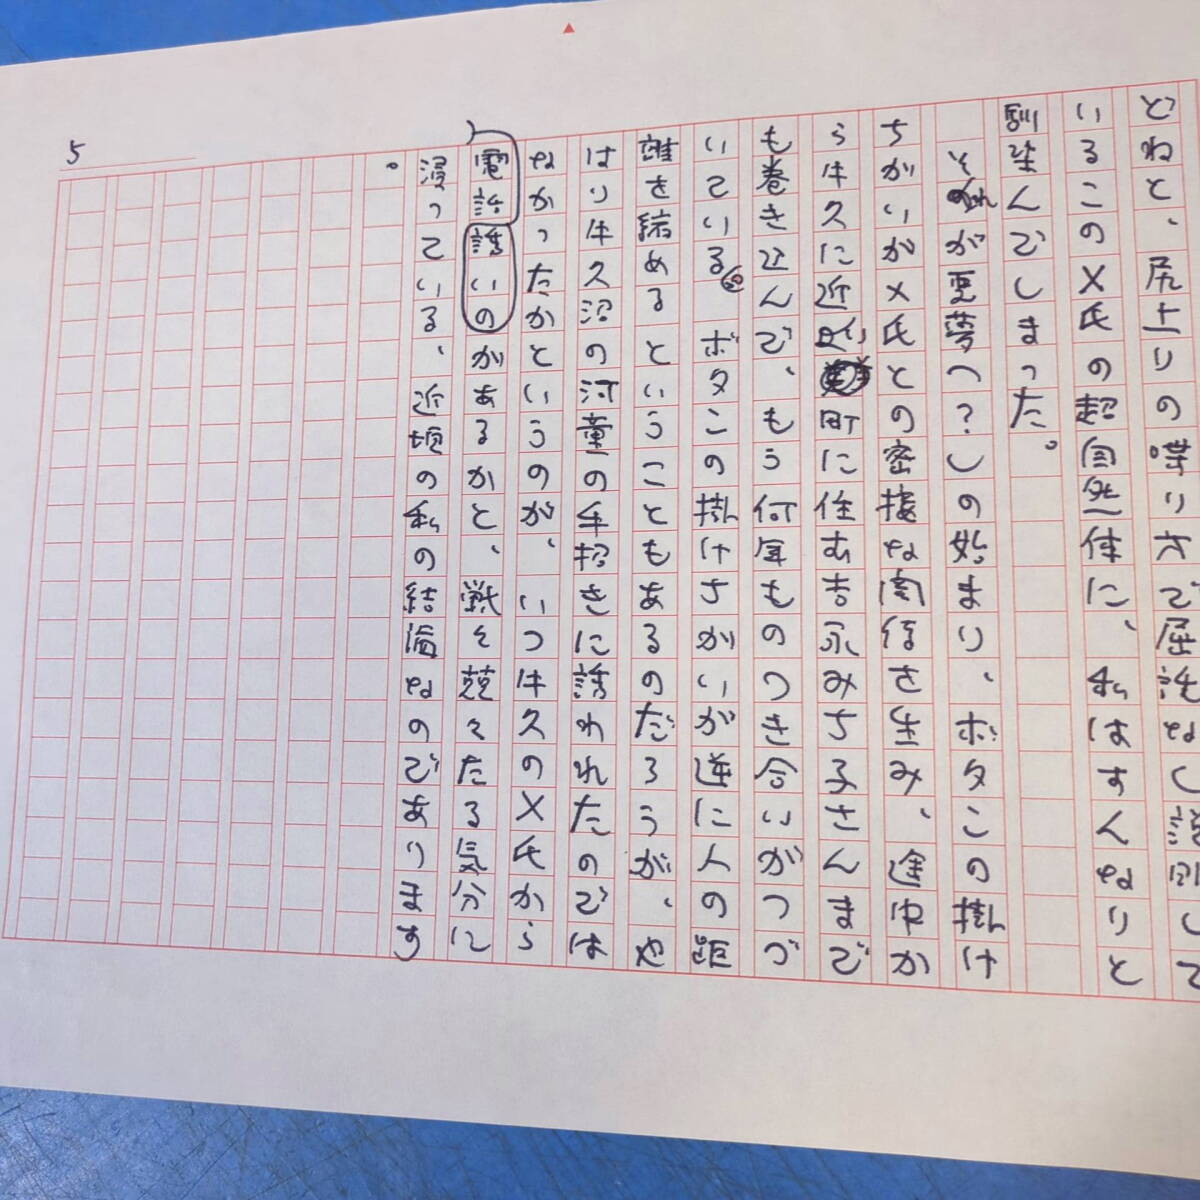 どねと、尻上りの喋り方で屈託なし談別して
いるこのメ氏の超自然体に、私はすんなりと
馴染んでしまった。
それが悪夢へ(?)の始まり、ボタンの掛け
ちがいがメ氏との密接な関係を生み、途中か
ら牛久に近い町に住む吉永みち子さんまで
も巻き込んで、もう何年ものつき合いがつづ
いている。ボタンの掛けちがいが逆に人の距
離を縮めるということもあるのだろうが、や
はり牛久沼の河童の手招きに誘われたのでは
なかったかというのが、いつ牛久のメ氏から
電話誘いのがあるかと、戦々兢々たる気分に
浸っている、近頃の私の結論なのであります
。
5